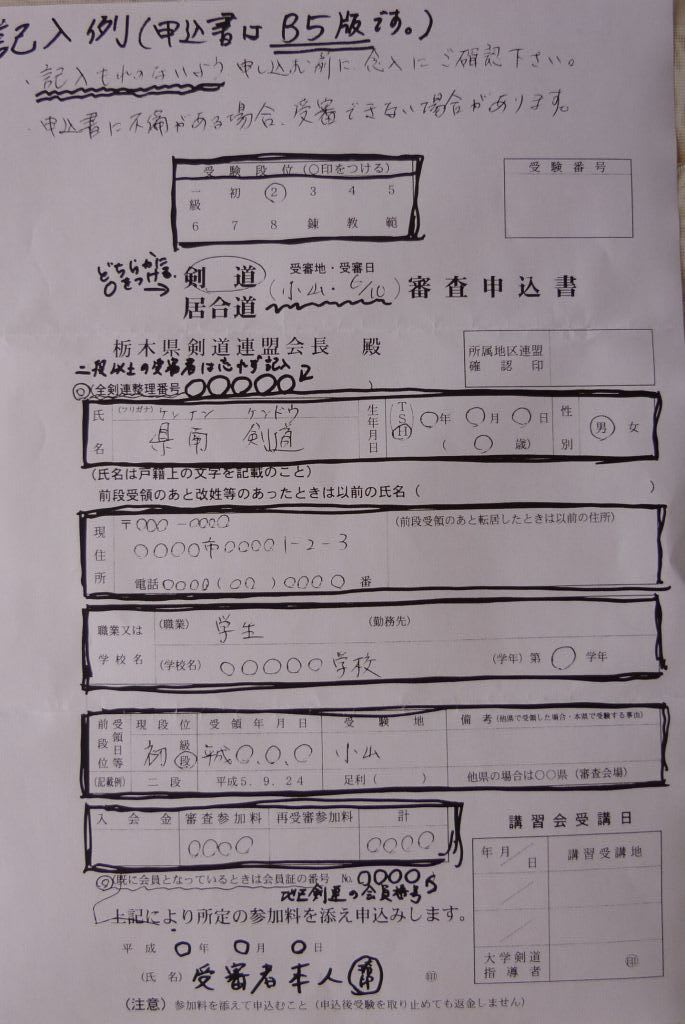 記入例(申込書は B5版です。)
・記入もれのないよう 申し込む前に 念入に ご確認下さい。
・申込書に不備がある場合、受審できない場合があります。
受験段位 (〇印をつける)
一級 初 2 3 4 5
6 7 8 錬 教 範
受験番号
どちらかに〇をつける→
剣道
居合道
受審地・受審日
(小山・6/10)
審査申込書
栃木県剣道連盟会長 殿
所属地区連盟
確認印
二段以上の受審者は忘れず記入
◎(全剣連整理番号 〇〇〇〇〇 )
氏名
(フリガナ) ケンナン ケンドウ
県南 剣道
生年月日
T S H 〇年 〇月 〇日
( 〇 歳)
性別
男 女
(氏名は戸籍上の文字を記載のこと)
前段受領のあと改姓等のあったときは以前の氏名 ( )
現住所
〒000-0000
〇〇〇〇市〇〇〇〇1-2-3
電話〇〇〇〇(〇〇)〇〇〇〇番
(前段受領のあと転居したときは以前の住所)
職業又は
学校名
(職業) 学生 (勤務先)
(学校名) 〇〇〇〇〇学校 (学年)第 〇 学年
前段位 受領日等 現段位 受領年月日 受験地 備考(他県で受領した場合・本県で受験する事由)
初 級 段 平成〇.〇.〇 小山
(記載例) 二段 平成5.9.24 足利( ) 他県の場合は〇〇県(審査会場)
入会金 審査参加料 再受審参加料 計
〇〇〇〇 〇〇〇〇
◎(既に会員となっているときは会員証の番号 No.〇〇〇〇
地区剣連の会員番号
上記により所定の参加料を添え申込みします。
平成 〇年 〇月 〇日
(氏名) 受審者本人 印
(注意) 参加料を添えて申込むこと (申込後受験を取り止めても返金しません)
講習会受講日
年月日 講習受講地
大学剣道
指導者
印